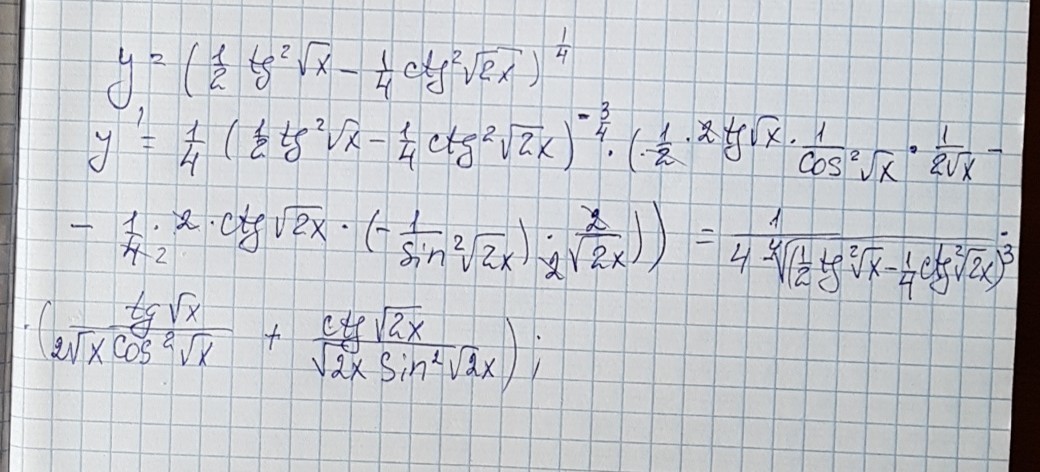 y = (1/2 tg²√x − 1/4 ctg²√2x)^(1/4)
y' = 1/4 (1/2 tg²√x − 1/4 ctg²√2x)^(−3/4) · (1/2 · 2 tg√x · 1/(cos²√x) · 1/(2√x) −
− 1/4₂ · 2 · ctg√2x · (−1/(sin²√2x)) · 2/(2√2x))) = 1/(4 ⁴√(1/2 tg²√x − 1/4 ctg²√2x)³) ·
· (tg√x/(2√x cos²√x) + ctg√2x/(√2x sin²√2x));